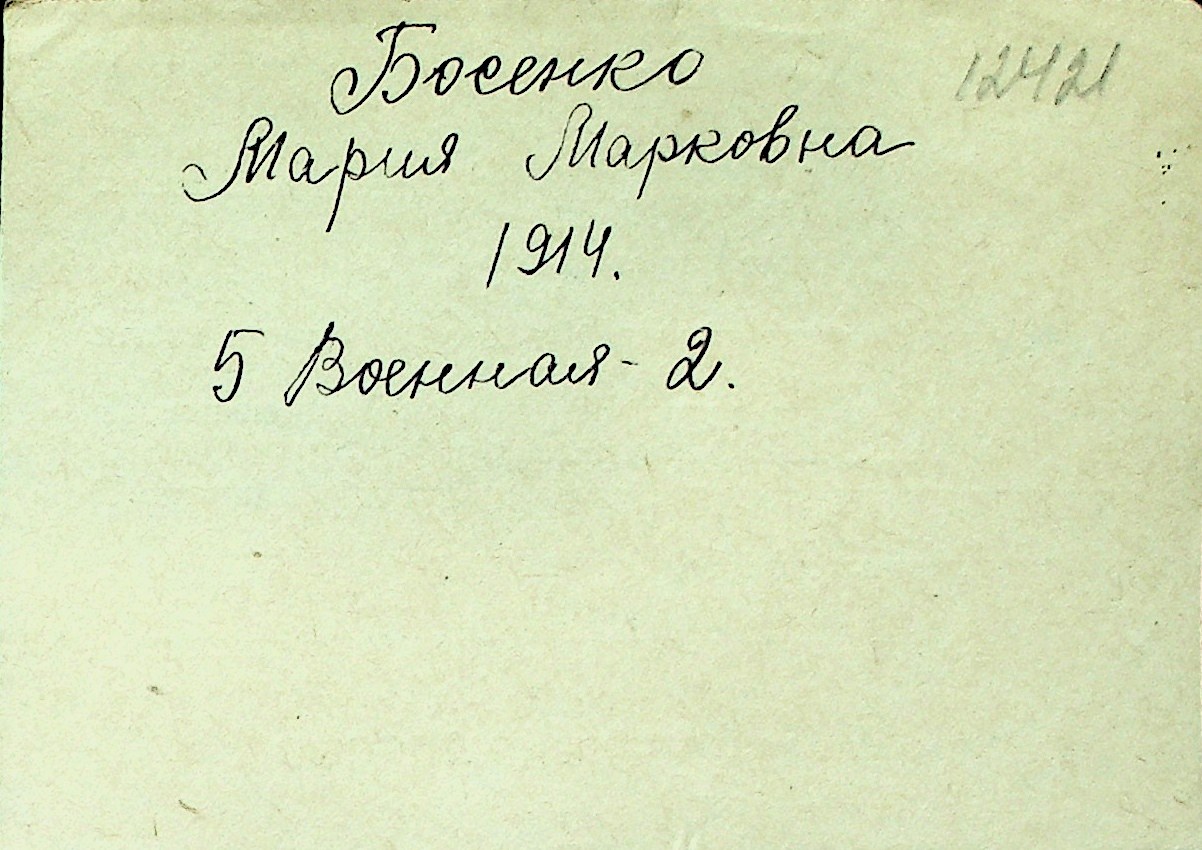 Босенко 12421
Мария Марковна
1914.
5 Военная - 2.